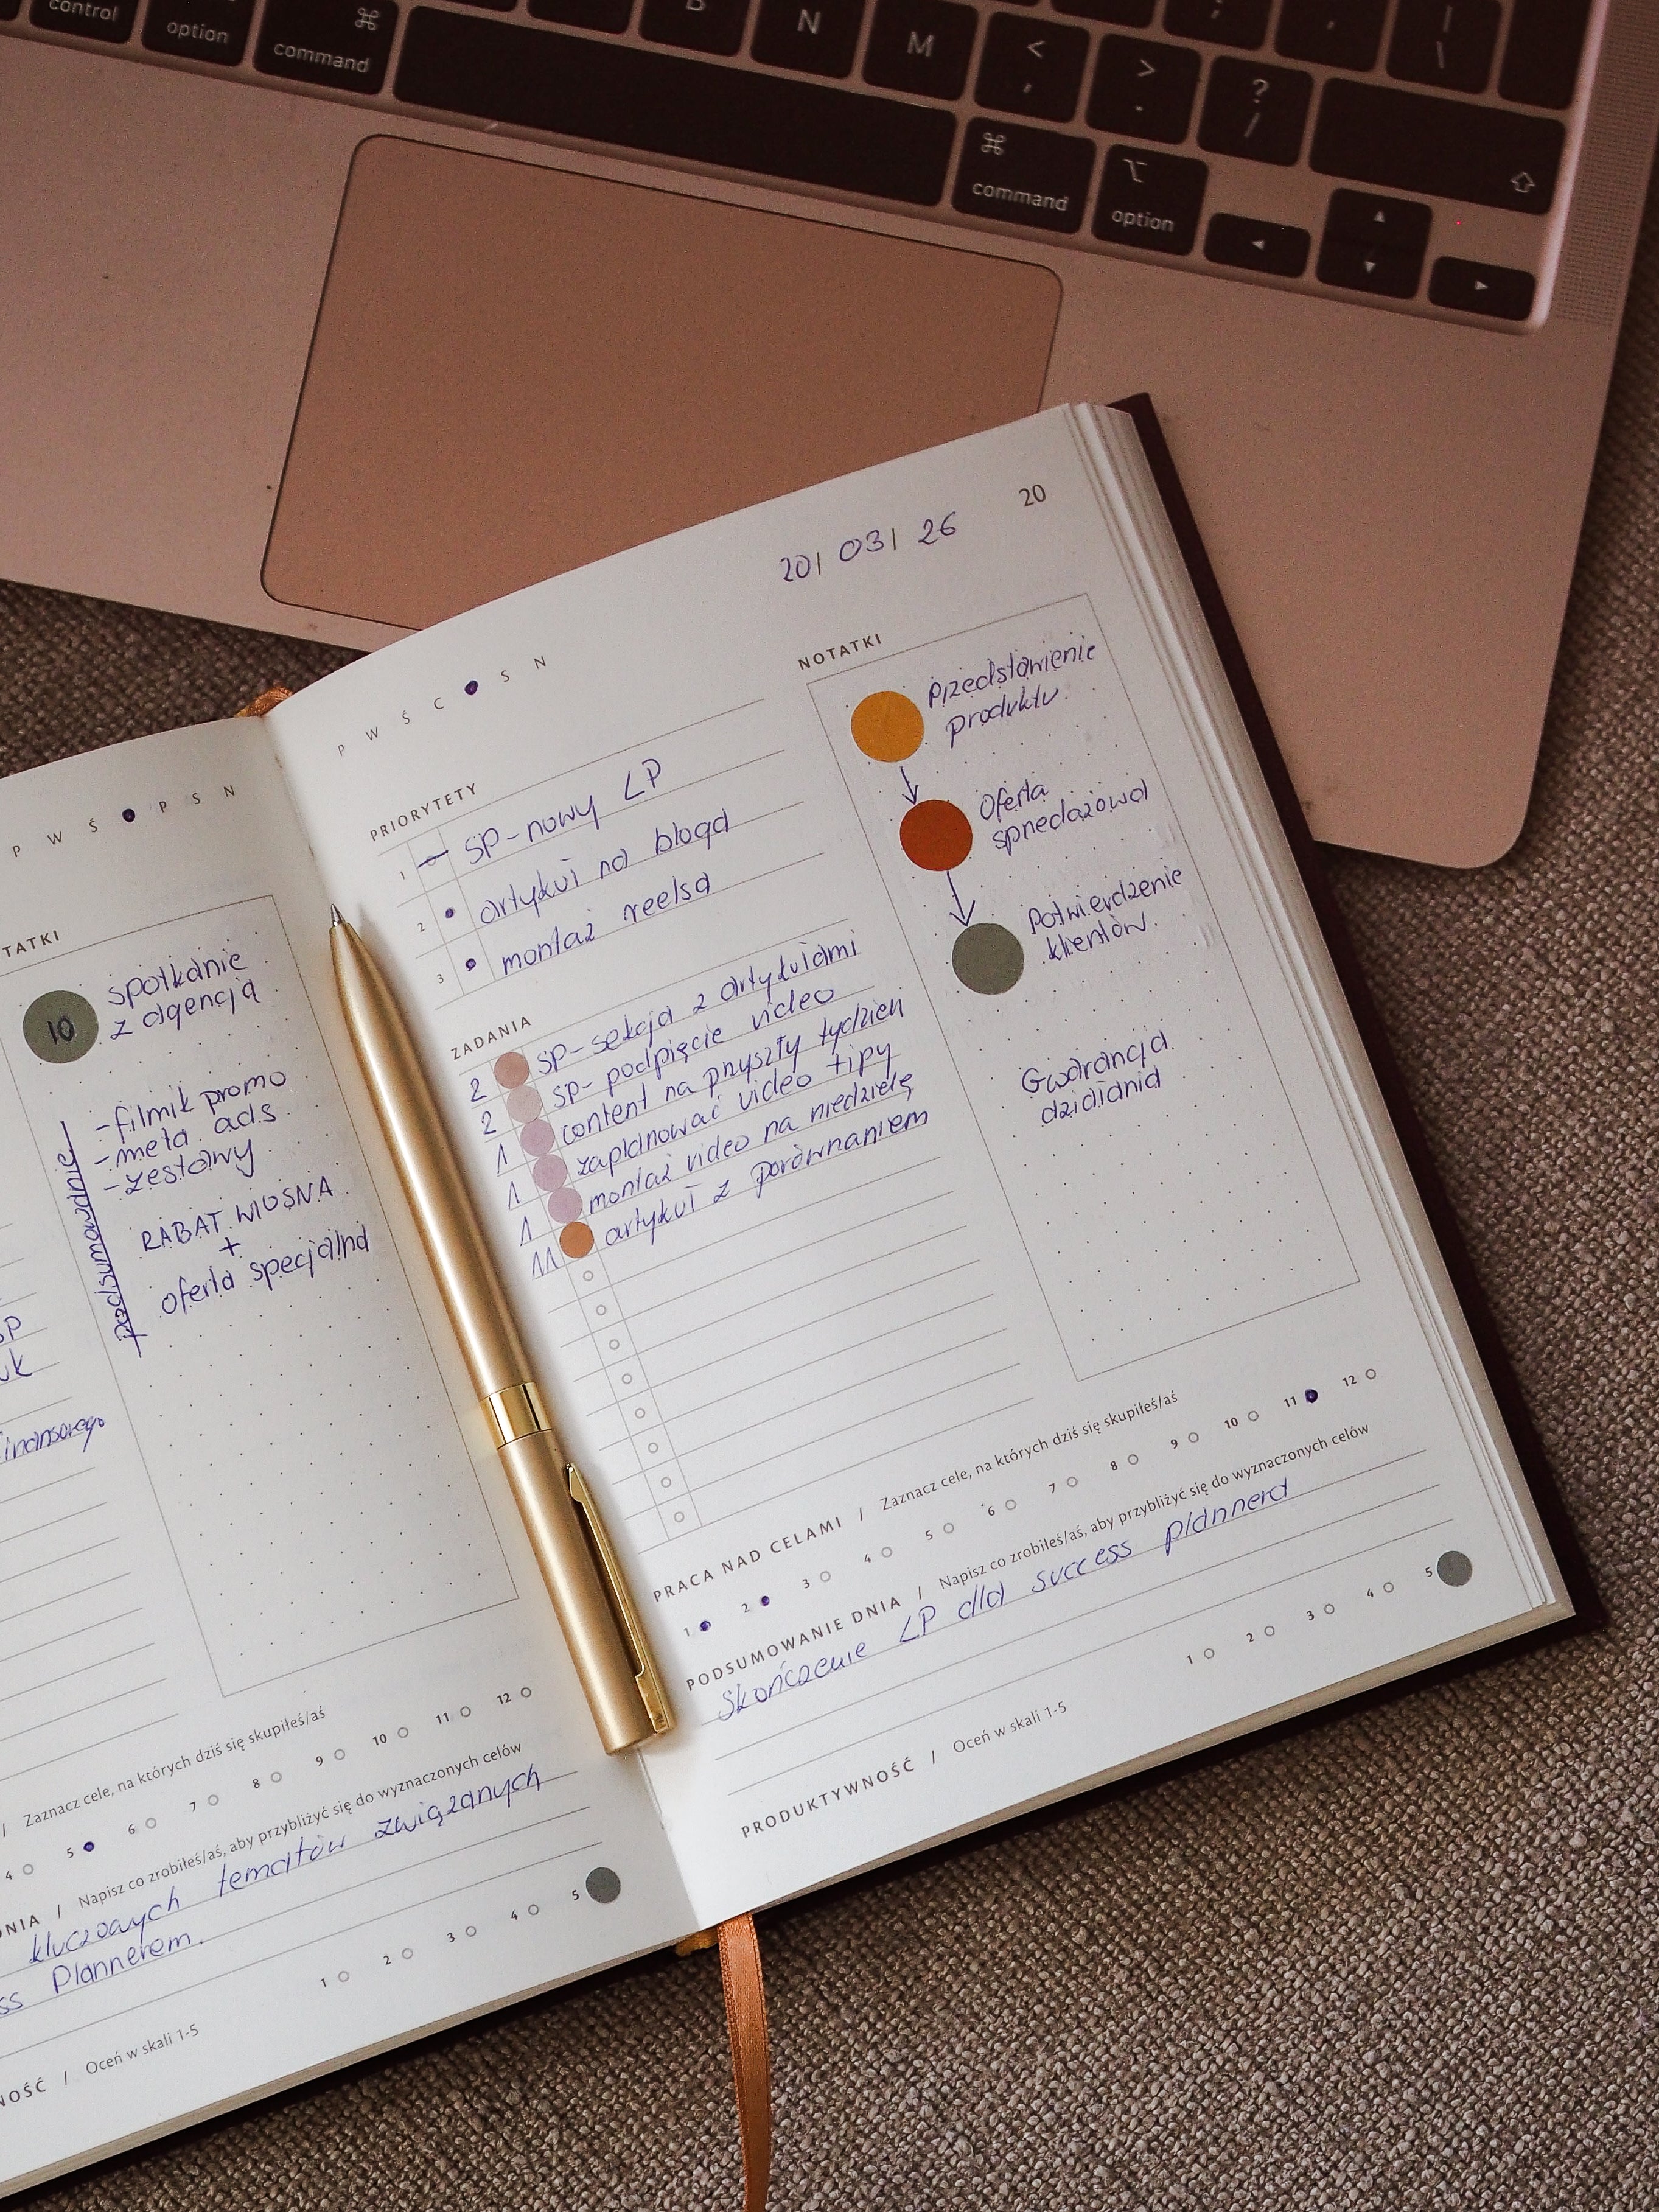 control
option
⌘
command
B
N
M
<
,
>
.
?
/
;
|
\
⌘
command
⌥
option
P W Ś P S N
TATKI
10
spotkanie
z agencją
- filmik promo
- meta ads
- zestawy
podsumowanie
RABAT WIOSNA
+
oferta specjalna
SP
finansowego
/ Zaznacz cele, na których dziś się skupiłeś/aś
4 5 6 7 8 9 10 11 12
DNIA / Napisz co zrobiłeś/aś, aby przybliżyć się do wyznaczonych celów
kluczowych tematów związanych
ss Plannerem.
NOŚĆ / Oceń w skali 1-5
1 2 3 4 5
20
20/ 03/ 26
P W Ś C S N
PRIORYTETY
1 SP - nowy LP
2 artykuł na bloga
3 montaż reelsa
ZADANIA
2 SP - sekcja z artykułami
2 SP - podpięcie video
1 content na przyszły tydzień
1 zaplanować video tipy
1 montaż video na niedzielę
11 artykuł z porównaniem
NOTATKI
Przedstawienie
produktu
Oferta
sprzedażowa
Potwierdzenie
klientów
Gwarancja
działania
PRACA NAD CELAMI / Zaznacz cele, na których dziś się skupiłeś/aś
1 2 3 4 5 6 7 8 9 10 11 12
PODSUMOWANIE DNIA / Napisz co zrobiłeś/aś, aby przybliżyć się do wyznaczonych celów
Skończenie LP dla success plannera
PRODUKTYWNOŚĆ / Oceń w skali 1-5
1 2 3 4 5